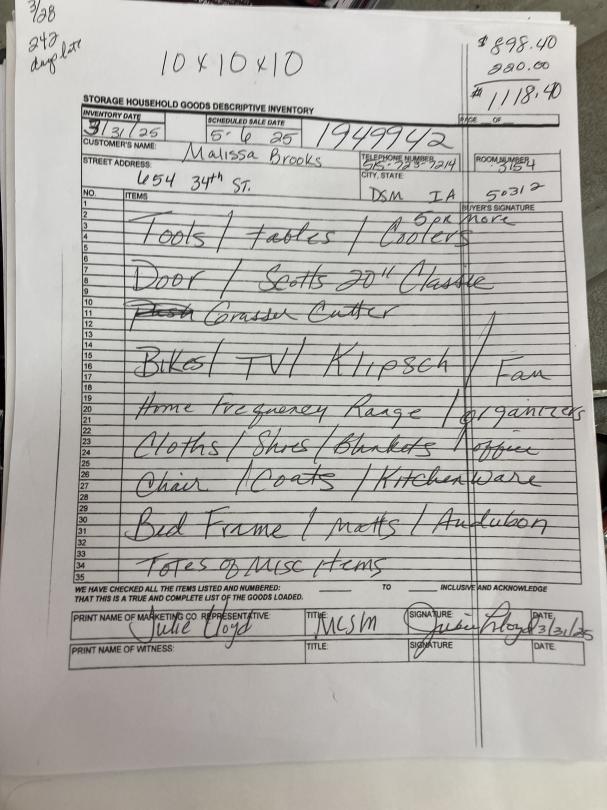 3/28
242
days late
10 x 10 x 10
$898.40
220.00
$1118.40
STORAGE HOUSEHOLD GOODS DESCRIPTIVE INVENTORY
PAGE __ OF __
INVENTORY DATE
3/31/25
SCHEDULED SALE DATE
5-6 25
1949942
CUSTOMER'S NAME:
Malissa Brooks
TELEPHONE NUMBER
515-723-7214
ROOM NUMBER
3154
STREET ADDRESS:
654 34th ST.
CITY, STATE
DSM IA 50312
NO. ITEMS BUYER'S SIGNATURE
1
2
3
4
5
6
7
8
9
10
11
12
13
14
15
16
17
18
19
20
21
22
23
24
25
26
27
28
29
30
31
32
33
34
35
More
Tools / tables / Coolers
Door / Scotts 20" Classic
Push Grasser Cutter
Bikes / TV / Klipsch / Fan
Home Frequency Range / organizers
Cloths / Shoes / Blankets / office
Chair / Coats / Kitchenware
Bed Frame / Matts / Audubon
Totes of Misc Items
WE HAVE CHECKED ALL THE ITEMS LISTED AND NUMBERED: ____ TO ____ INCLUSIVE AND ACKNOWLEDGE
THAT THIS IS A TRUE AND COMPLETE LIST OF THE GOODS LOADED.
PRINT NAME OF MARKETING CO. REPRESENTATIVE:
Julie Lloyd
TITLE:
MCSM
SIGNATURE
Julie Lloyd
DATE
3/31/25
PRINT NAME OF WITNESS:
TITLE:
SIGNATURE
DATE